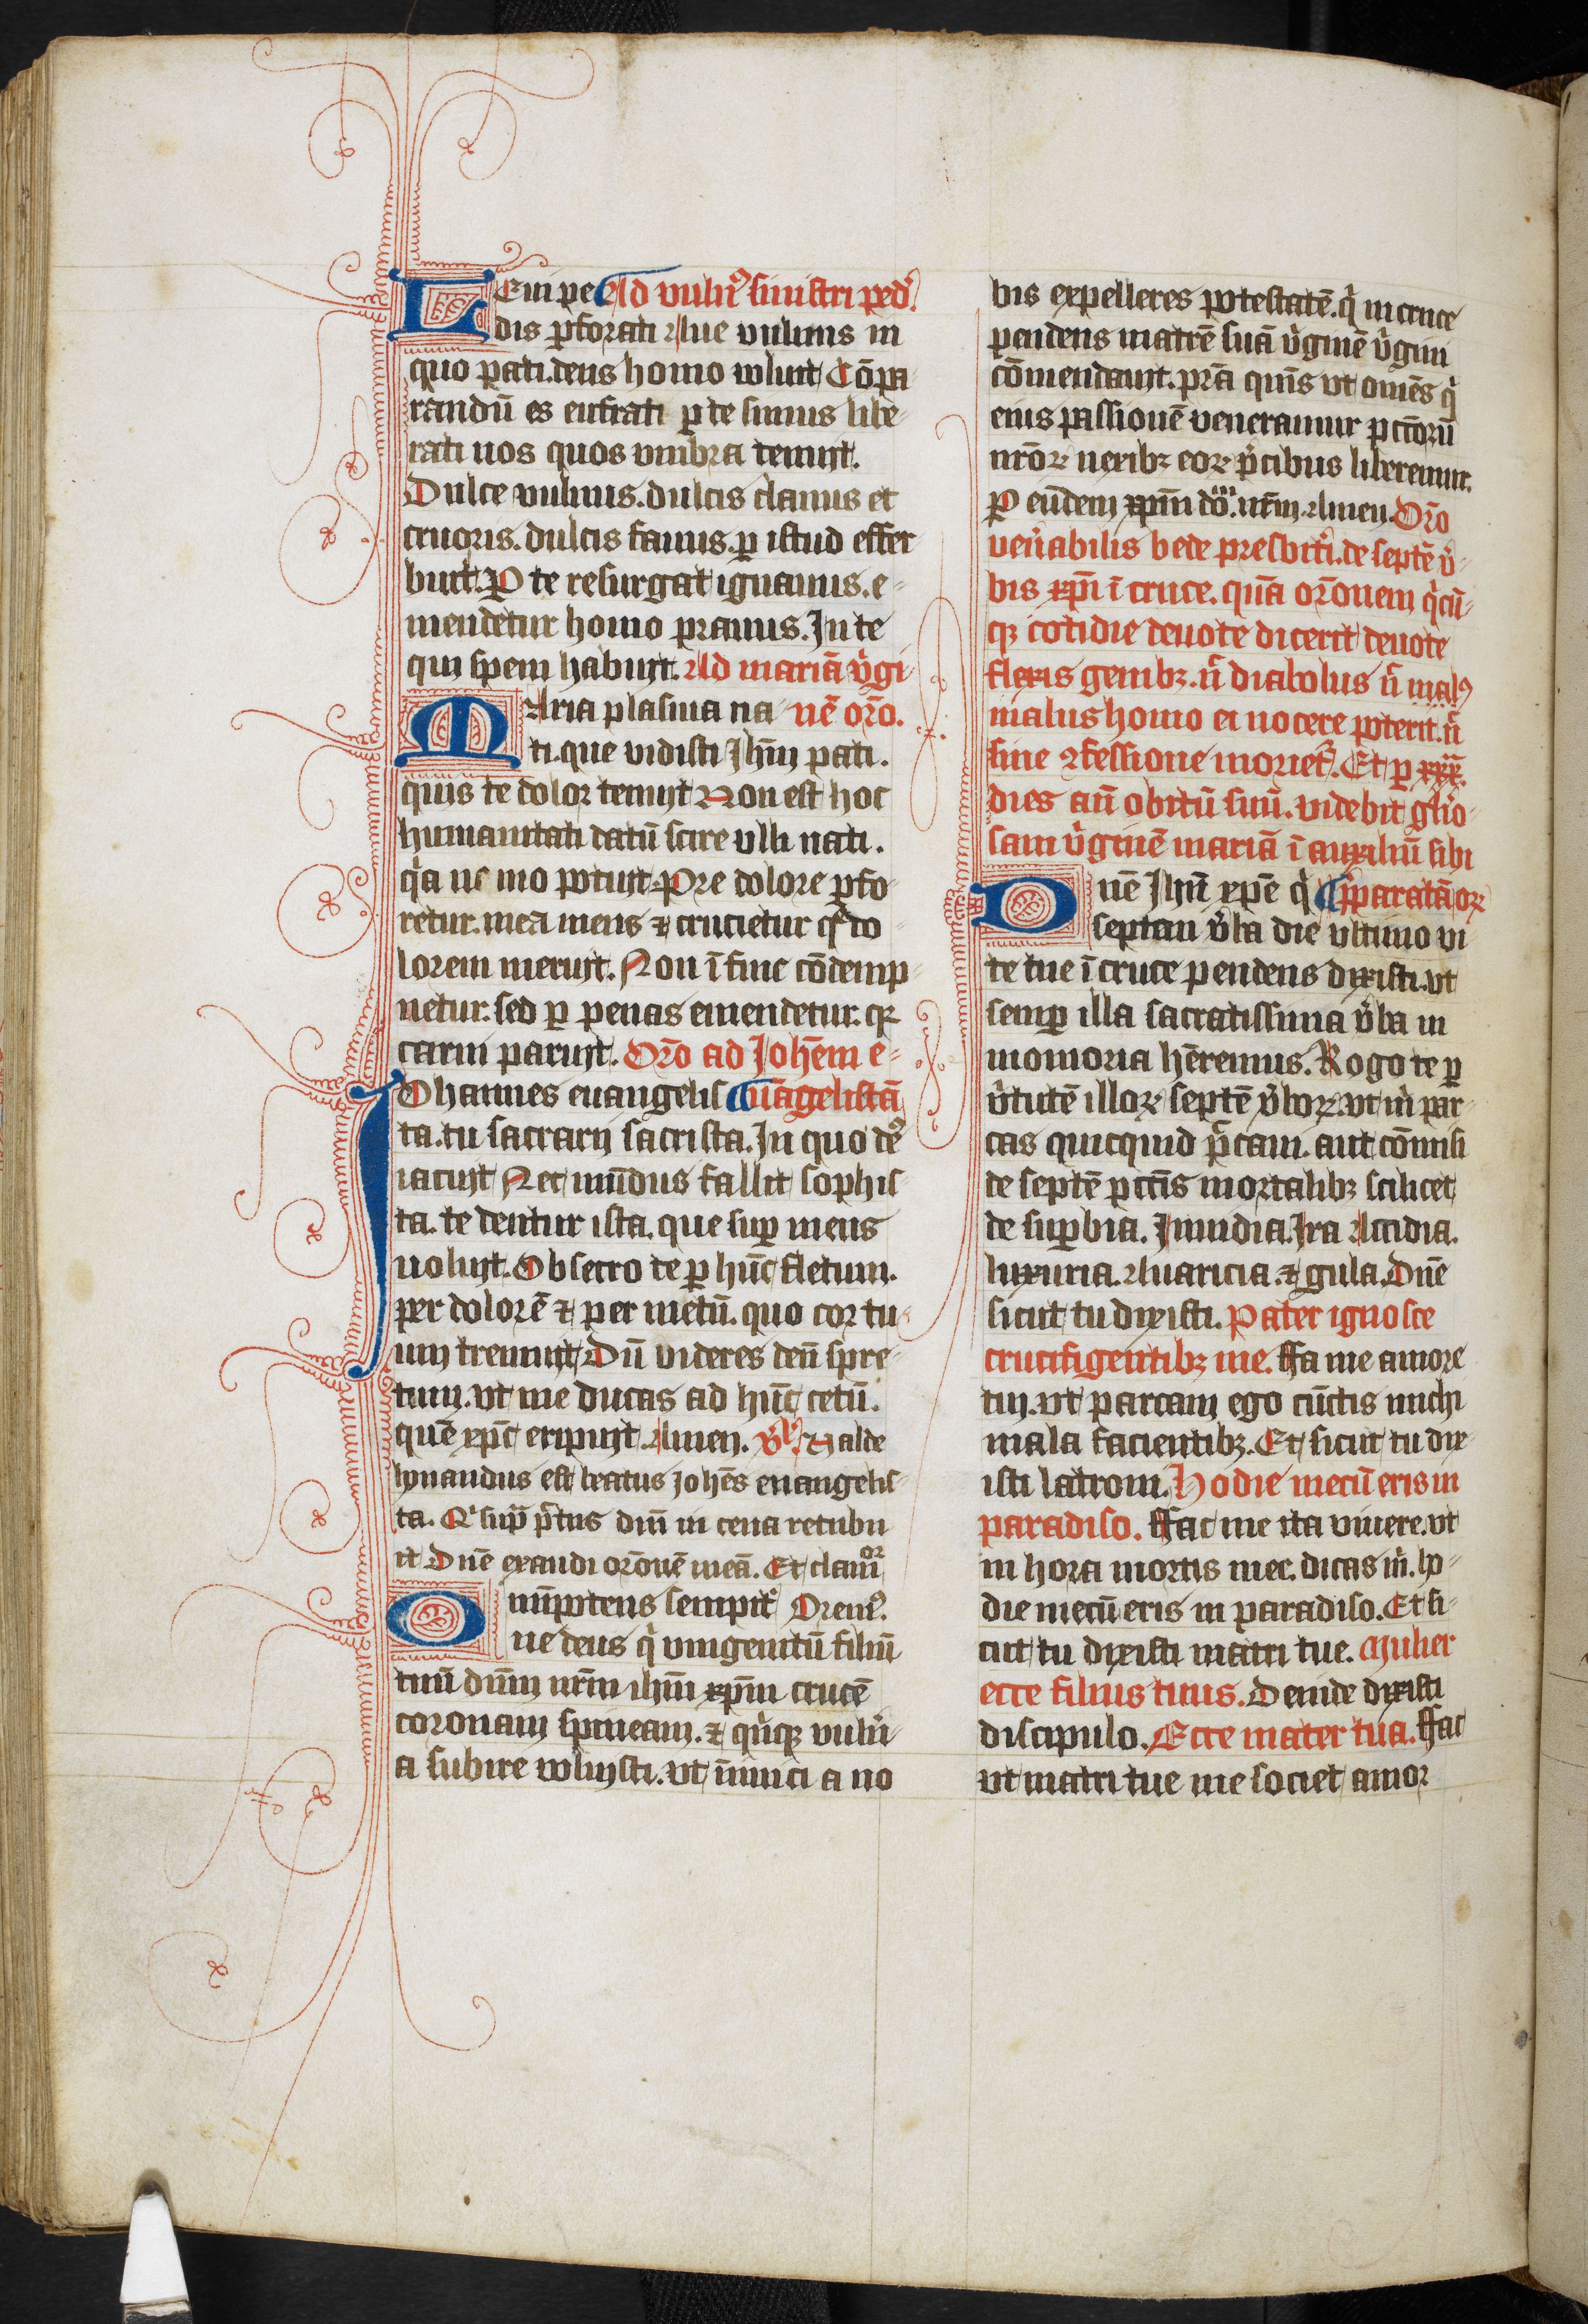 Leui pe Ad vuln⁹ sinistri ped̛.
dis ꝑforati Aue vulnus in
quo pati. deus homo voluit Cōpa
randū es eufrati ꝑ te sumus libe-
rati nos quos vmbra tenuit.
Dulce vulnus. dulcis clauus et
cruoris. dulcis fauus. ꝑ istud effer
buit. Ꝑ te resurgat ignauus. e-
mendetur homo prauus. In te
qui spem habuit. Ad mariā v̛gi
MAria plasma na nē orō.
ti. que vidisti Jhm̄ pati.
quis te dolor tenuit Non est hoc
humanitati datū scire vlli nati.
q̛a ne mo potuit. Pre dolore ꝑfo-
retur. mea mens ⁊ crucietur q̛ do-
lorem meruit. Non ī fine cōdemp-
netur. sed ꝑ penas emendetur. qꝛ
carni paruit. Orō ad Johēm e-
JOhannes euangelis uāgelistā
ta. tu sacrarij sacrista. In quo de⁹
iacuit Nec mūdus fallit sophis-
ta. te dentur ista. que suꝑ mens
uoluit. Obsecro te ꝑ hūc fletum.
per dolorē ⁊ per metū. quo cor tu-
um tremuit Dū videres deū spre-
tum. vt me ducas ad hūc cetū.
quē xp̄c eripuit. Amen. v̛s. Valde
honandus est beatus johēs euangelis-
ta. Q̛ sup̄ p̄tus dn̄i in cena recubu
it Dnē exaudi orōnē meā. Et clamor
OMnip̄otens sempit̛ Orem⁹.
ne deus q̛ vnigenitū filiū
tuū dn̄m nr̄m ihm̄ xp̄m crucē
coronam spineam. ⁊ qn̛qꝫ vuln̛-
a subire voluisti. vt inimici a no
bis expelleres potestatē. q̛ in cruce
pendens matrē suā v̛ginē v̛gini
cōmendauit. p̄ra quis̄ vt omēs q̛
eius passionē veneramur pcc̄orū
nr̄oꝝ nexibꝫ eoꝝ p̄cibus liberemur.
Ꝑ eūdem xp̄m dō. nr̄m. Amen. Orō
ven̛abilis bede presbit̛i. de septē v̛-
bis xp̄i ī cruce. quā orōnem q̛cū-
qꝫ cotidie deuote dicerit deuote
flexis genibꝫ. n̄ diabolus n̄ mal⁹
malus homo ei nocere poterit. n̄
sine ꝯfessione moriet̛. Et ꝑ xxx.
dies an̄ obitū suū. videbit gl̛io-
sam v̛ginē mariā ī auxiliū sibi
Dnē Jhū xp̄e q̛ p̄paratā oꝛ
septem v̛ba die vltimo vi
te tue ī cruce pendens dixisti. vt
semꝑ illa sacratissima v̛ba in
momoria hēremus. Rogo te ꝑ
v̛tutē illoꝝ septē v̛boꝝ. vt m̛ par-
cas quicquid p̄caui. aut cōmisi
de septē pcc̄is mortalibꝫ scilicet
de suꝑbia. Jnuidia. Jra Accidia.
luxuria. Auaricia. ⁊ gula. Dnē
sicut tu dixisti. Pater ignosce
crucifigentibꝫ me. ffa me amore
tui. vt parcam ego cūctis michi
mala facientibꝫ. Et sicut tu dix-
isti latroni. Hodie mecū eris in
paradiso. ffac me ita viuere. vt
in hora mortis mee. dicas m̛. ho-
die mecū eris in paradiso. Et si-
cut tu dixisti matri tue. Mulier
ecce filius tuus. Deinde dixisti
discipulo. Ecce mater tua. ffac
vt matri tue me societ amor